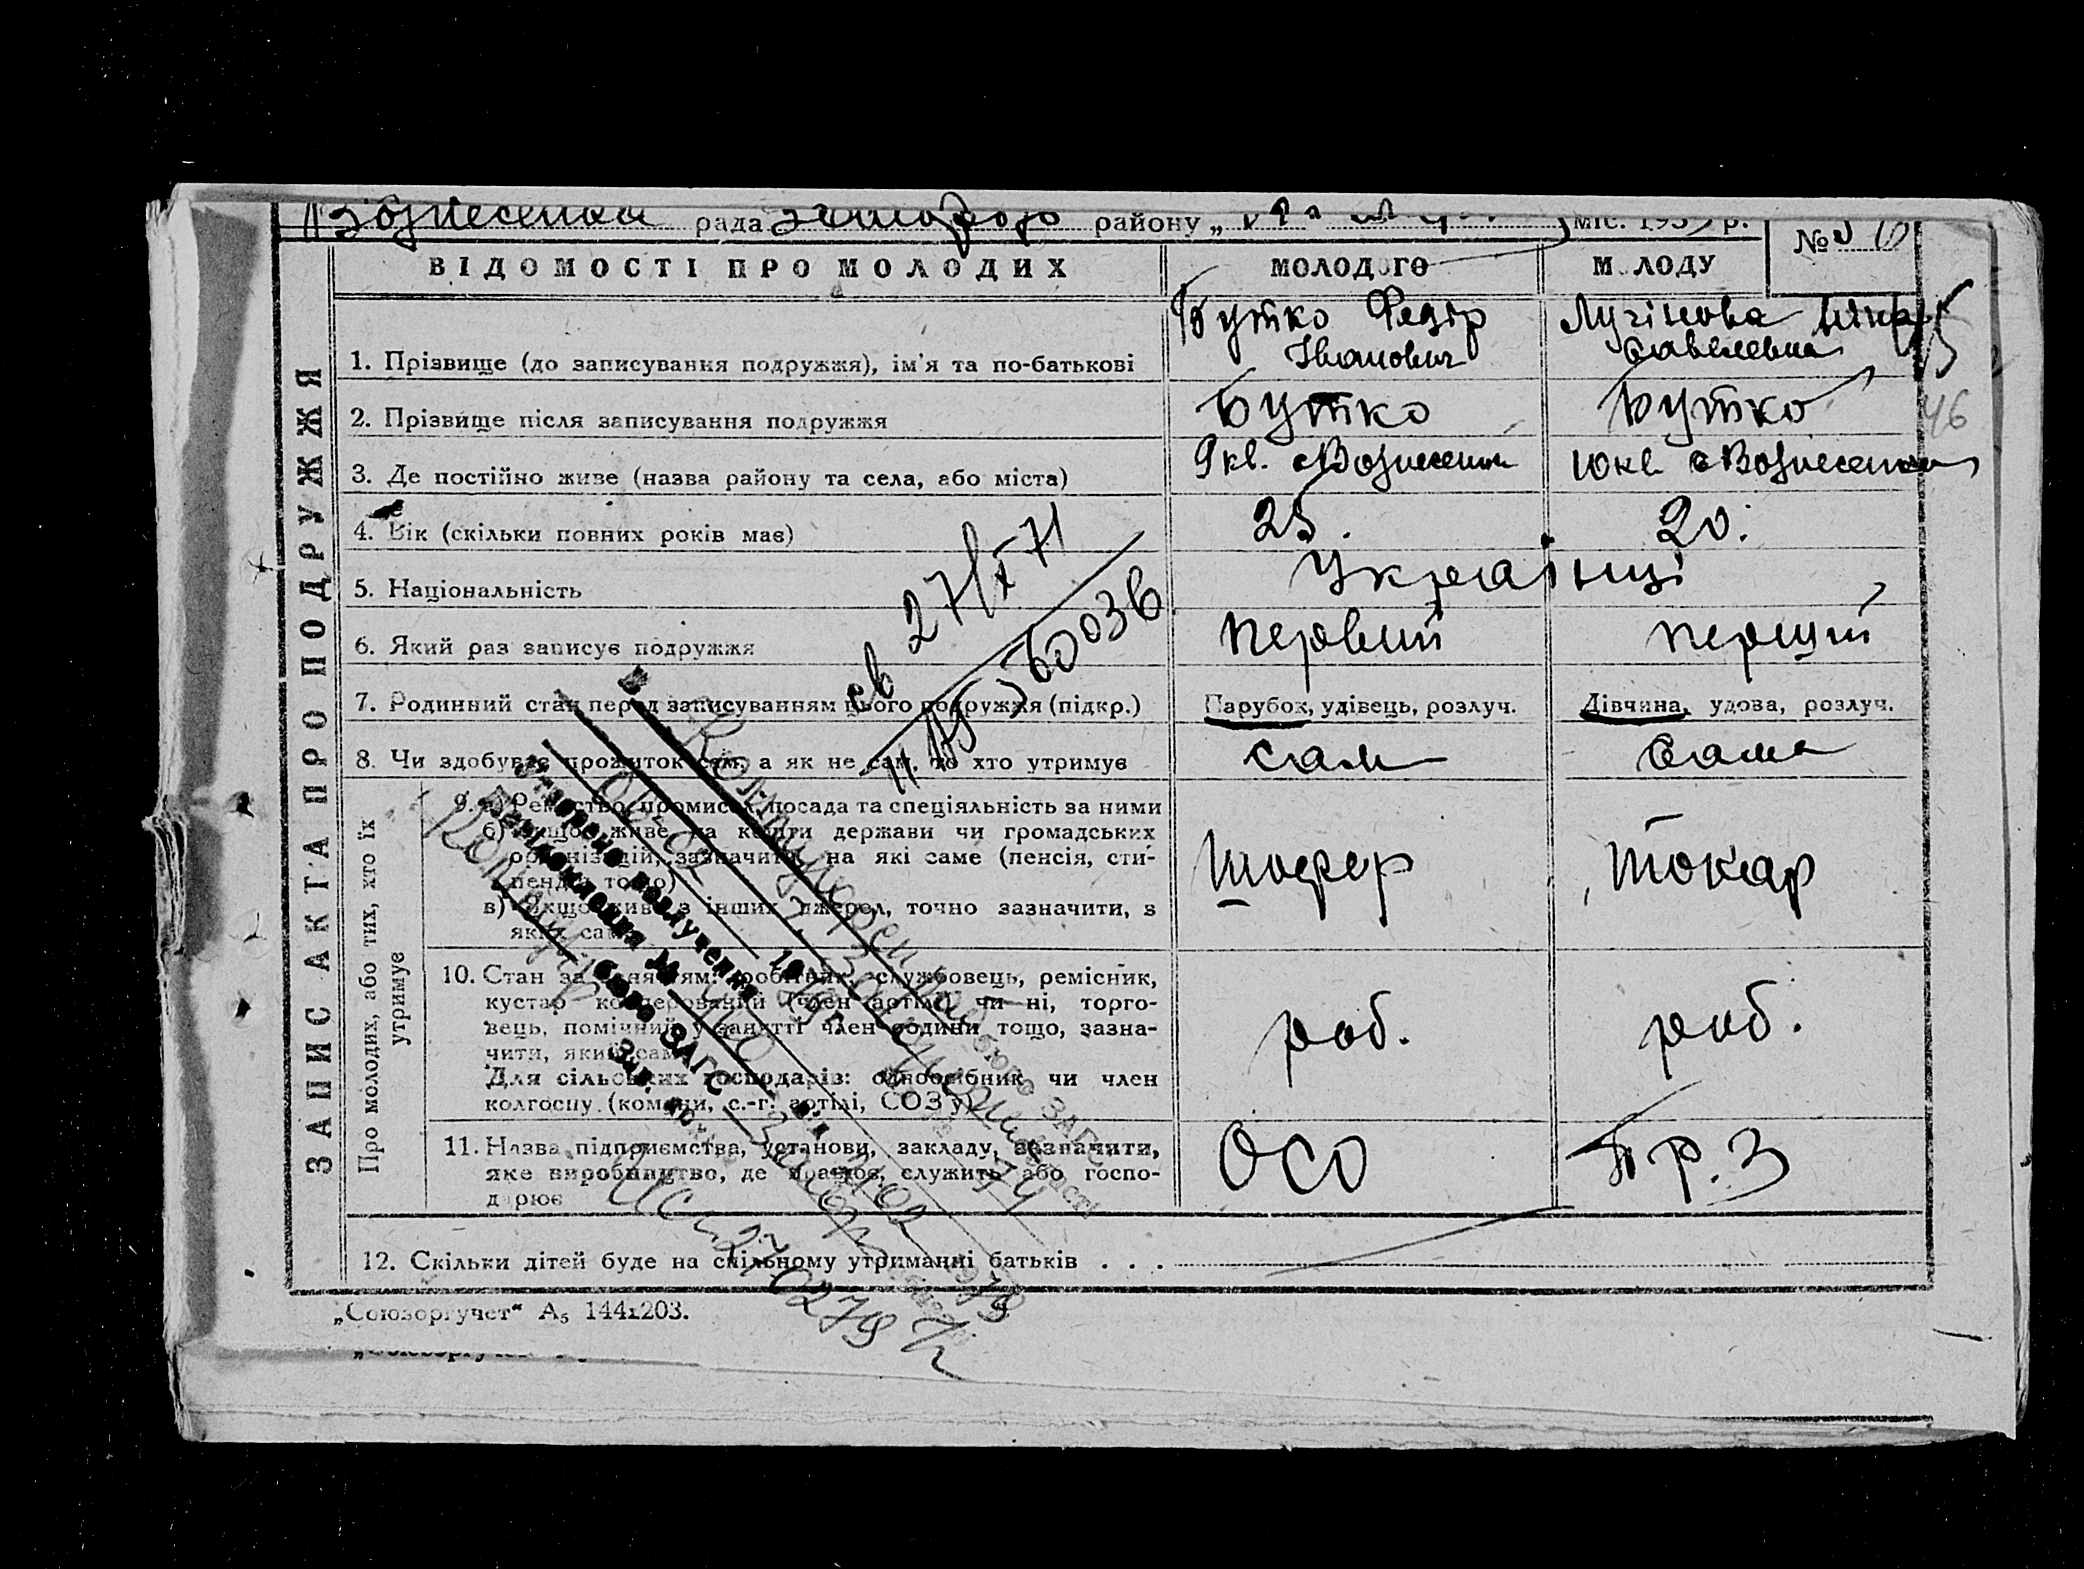 Вознесенка рада Запоріз району „ міс. 193 р.
№
ВІДОМОСТІ ПРО МОЛОДИХ
МОЛОДОГО
МОЛОДУ
ЗАПИС АКТА ПРО ПОДРУЖЖЯ
1. Прізвище (до записування подружжя), ім'я та по-батькові
Бутко Федір
Іванович
Лугінова
Савелевна
2. Прізвище після записування подружжя
Бутко
Бутко
46
3. Де постійно живе (назва району та села, або міста)
9 кв. Вознесенка
10 кв. Вознесенка
4. Вік (скільки повних років має)
25.
20.
5. Національність
Українці
6. Який раз записує подружжя
первий
перший
7. Родинний стан перед записуванням цього подружжя (підкр.)
Парубок, удівець, розлуч.
Дівчина, удова, розлуч.
8. Чи здобуває прожиток сам, а як не сам, то хто утримує
сам
сама
Про молодих, або тих, хто їх
утримує
9. а) Ремество, промисел, посада та спеціяльність за ними
б) Якщо живе на кошти держави чи громадських
організацій, зазначити, на які саме (пенсія, сти-
пендія тощо)
в) Якщо живе з інших джерел, точно зазначити, з
яких саме
шофер
токар
10. Стан за заняттям: робітник, службовець, ремісник,
кустар кооперований (член артілі) чи ні, торго-
вець, помічний у занятті член родини тощо, зазна-
чити, який саме
Для сільських господарів: одноосібник чи член
колгоспу (комуни, с.-г. артілі, СОЗ'у)
роб.
роб.
11. Назва підприємства, установи, закладу, зазначити,
яке виробництво, де працює, служить або госпо-
дарює
ОСО
П Р. З
12. Скільки дітей буде на спільному утриманні батьків . . .
„Союзоргучет“ А₅ 144х203.
св 27/X 71
60036
Утворено розлучення
Бюро ЗАГС
Зав.
бюро ЗАГС